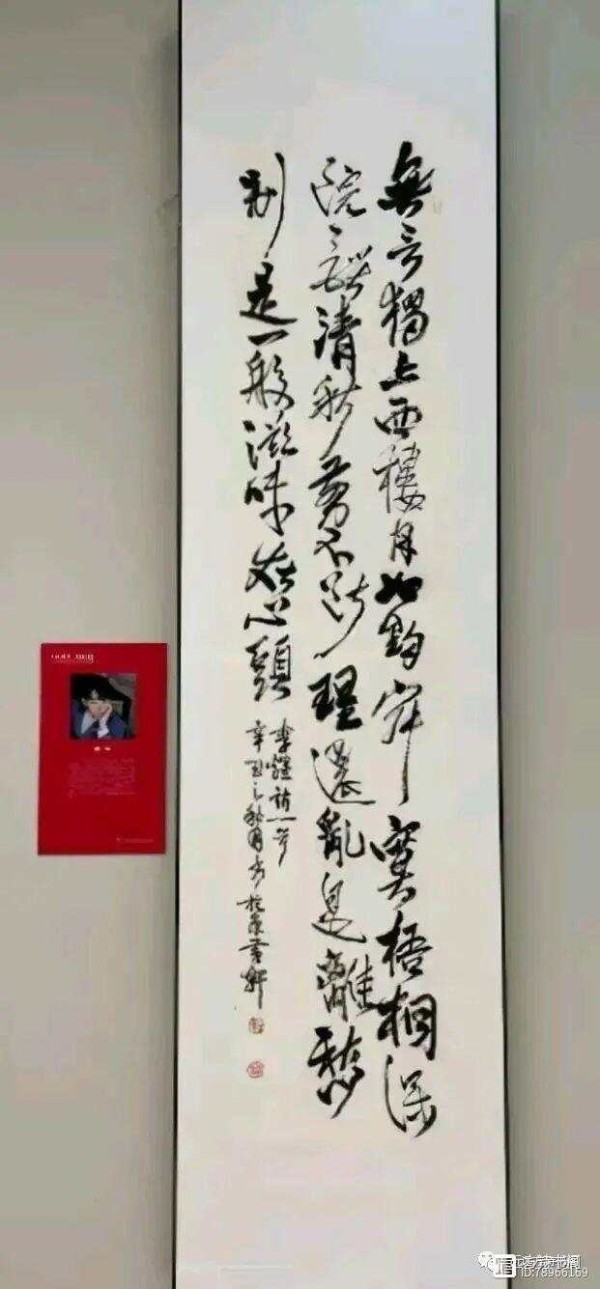 無言獨上西樓月如鈎寂寞梧桐深
院鎖清秋剪不斷理還亂是離愁
別是一般滋味在心頭
李煜詩一首
辛丑之秋月
ID:78966169